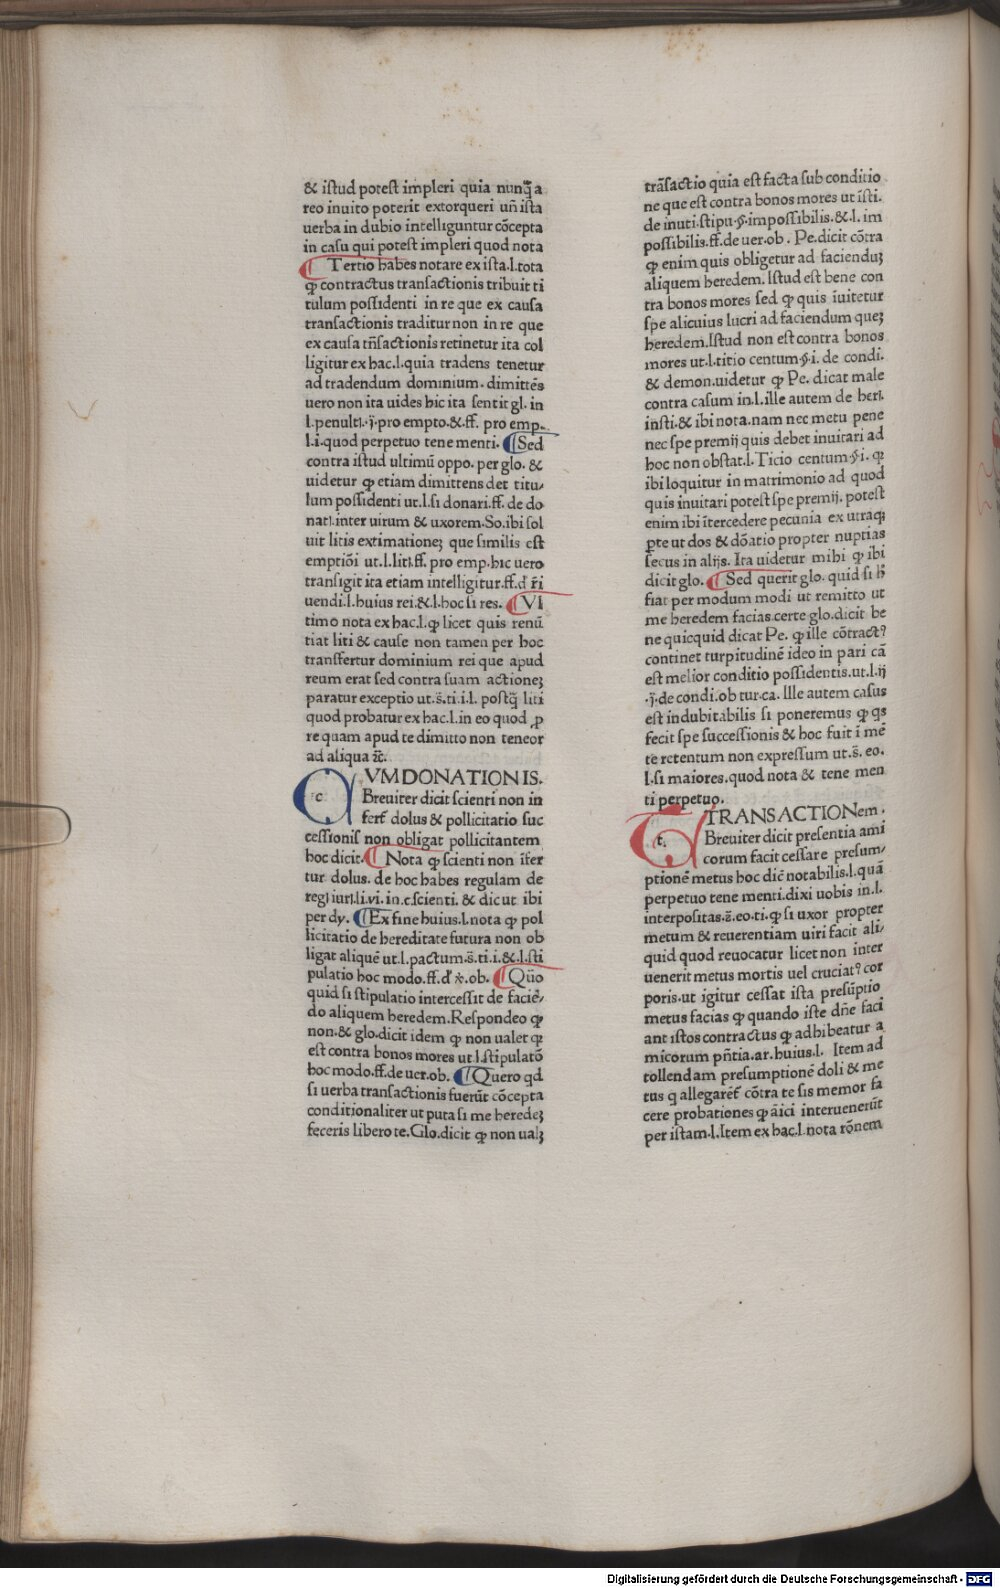 & istud potest impleri quia nunq̃ a
reo inuito poterit extorqueri uñ ista
uerba in dubio intelliguntur cõcepta
in casu qui potest impleri quod nota
¶ Tertio habes notare ex ista.l.tota
ꝙ contractus transactionis tribuit ti
tulum possidenti in re que ex causa
transactionis traditur non in re que
ex causa trãsactionis retinetur ita col
ligitur ex hac.l.quia tradens tenetur
ad tradendum dominium. dimittẽs
uero non ita uides hic ita sentit gl. in
l.penultI. pro empto.&.ff. pro emp.
l.i.quod perpetuo tene menti. ¶ Sed
contra istud ultimũ oppo. per glo. &
uidetur ꝙ etiam dimittens det titu/
lum possidenti ut.l.si donari.ff. de do
natI.inter uirum & uxorem.So.ibi sol
uit litis extimationeꝫ que similis est
emptiõi ut.l.litI.ff. pro emp.hic uero
transigit ita etiam intelligitur.ff.đ r̃i
uendi.l.huius rei.&.l.hoc si res. ¶ Vl
timo nota ex hac.l.ꝙ licet quis renũ
tiat liti & cause non tamen per hoc
transfertur dominium rei que apud
reum erat sed contra suam actioneꝫ
paratur exceptio ut.s̃.ti.i.l. postq̃ liti
quod probatur ex hac.l.in eo quod ꝓ
re quam apud te dimitto non teneor
ad aliqua ⁊c̃.
CVM DONATIONIS.
Breuiter dicit scienti non in
fert̃ dolus & pollicitatio suc
cessionis non obligat pollicitantem
hoc dicit. ¶ Nota ꝙ scienti non ĩfer
tur dolus. de hoc habes regulam de
regI iurI.li.vi. in.c.scienti. & dic ut ibi
per dy. ¶ Ex fine huius.l.nota ꝙ pol
licitatio de hereditate futura non ob
ligat aliquẽ ut.l.pactum.s̃.ti.i.&.l.sti
pulatio hoc modo.ff.đ x̃.ob. ¶ Qũo
quid si stipulatio intercessit de faciẽ/
do aliquem heredem. Respondeo ꝙ
non.& glo.dicit idem ꝙ non ualet ꝗa
est contra bonos mores ut.l.stipulatõ
hoc modo.ff.de uer.ob. ¶ Quero qđ
si uerba transactionis fuerũt cõcepta
conditionaliter ut puta si me heredeꝫ
feceris libero te. Glo.dicit ꝙ non ualꝫ
trãsactio quia est facta sub conditio
ne que est contra bonos mores ut ĩsti.
de inuti.stipu.§.impossibilis.&.l. im
possibilis.ff.de uer.ob. Pe.dicit cõtra
ꝙ enim quis obligetur ad faciendũꝫ
aliquem heredem. Istud est bene con
tra bonos mores sed ꝙ quis ĩuitetur
spe alicuius lucri ad faciendum queꝫ
heredem. Istud non est contra bonos
mores ut.l.titio centum.§.i. de condi.
& demon.uidetur ꝙ Pe. dicat male
contra casum in.l.ille autem de herI.
insti.& ibi nota.nam nec metu pene
nec spe premij quis debet inuitari ad
hoc non obstat.l.Ticio centum.§.i. ꝗa
ibi loquitur in matrimonio ad quod
quis inuitari potest spe premij. potest
enim ibi ĩtercedere pecunia ex utraqꝫ
ꝑte ut dos & dõatio propter nuptias
secus in alijs. Ita uidetur mihi ꝙ ibi
dicit glo. ¶ Sed querit glo. quid si h̃
fiat per modum modi ut remitto ut
me heredem facias.certe glo.dicit be
ne quicquid dicat Pe. ꝙ ille cõtractꝰ
continet turpitudinẽ ideo in pari cã
est melior conditio possidentis.ut.l.ij
.de condi.ob tur.ca. Ille autem casus
est indubitabilis si poneremus ꝙ q̃s
fecit spe successionis & hoc fuit ĩ mẽ
te retentum non expressum ut.s̃. eo.
l.si maiores.quod nota & tene men
ti perpetuo.
TRANSACTIONem.
Breuiter dicit presentia ami
corum facit cessare presum/
ptionẽ metus hoc dicĩt notabilis.l.quã
perpetuo tene menti.dixi uobis in.l.
interpositas.s̃.eo.ti.ꝙ si uxor propter
metum & reuerentiam uiri facit ali/
quid quod reuocatur licet non inter
uenerit metus mortis uel cruciatꝰ cor
poris.ut igitur cessat ista presũptio
metus facias ꝙ quando iste dñe faci
ant istos contractus ꝙ adhibeatur a
micorum p̃ntia.ar.huius.l. Item ad
tollendam presumptionẽ doli & me
tus q̃ allegaret̃ cõtra te sis memor fa
cere probationes ꝙ ãici interuenerũt
per istam.l.Item ex hac.l.nota rõnem
Digitalisierung gefördert durch die Deutsche Forschungsgemeinschaft - DFG